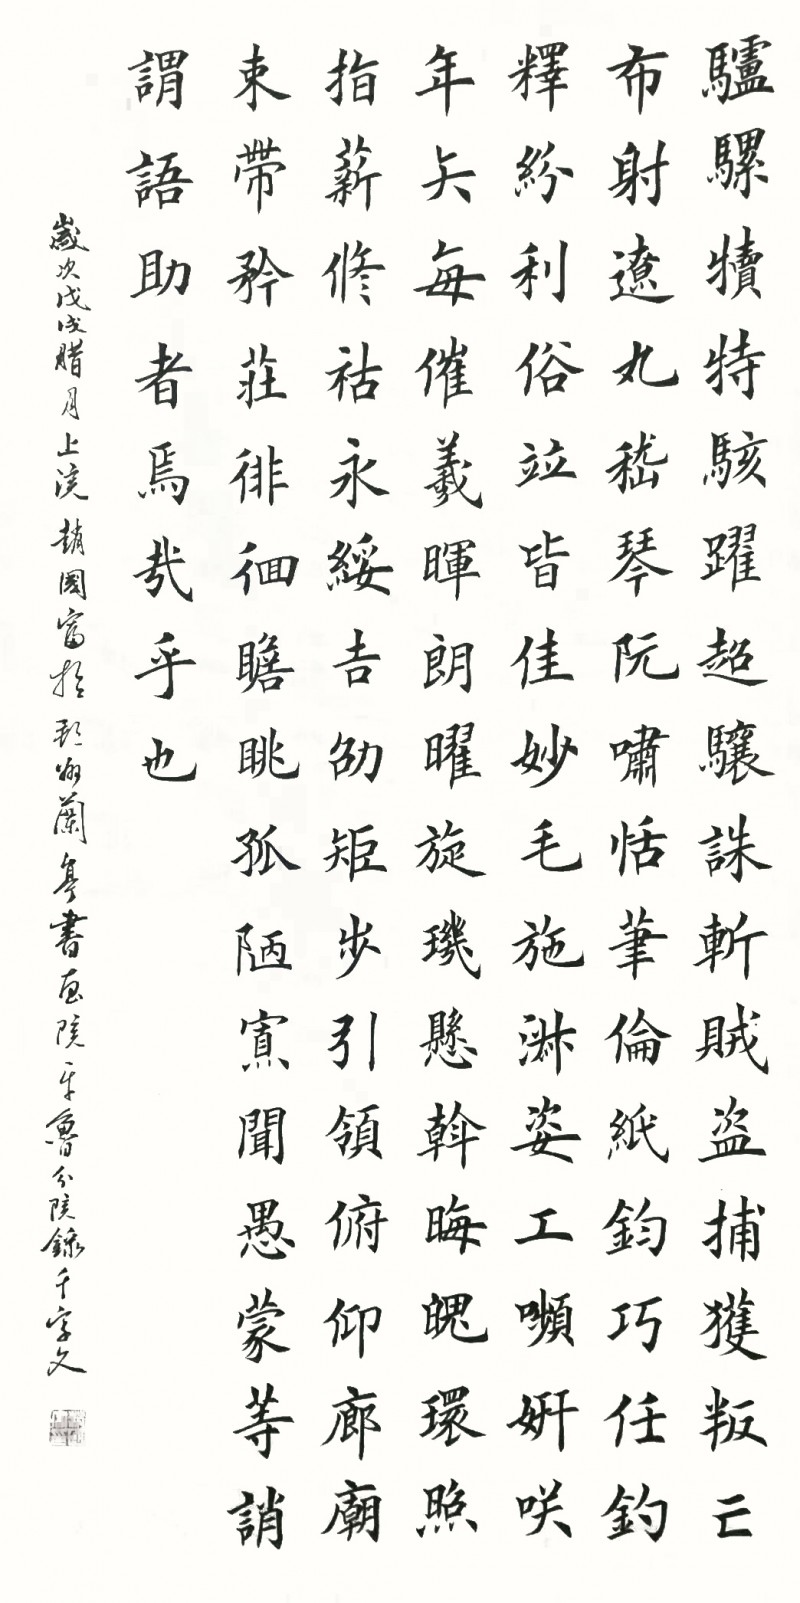 驢騾犢特駭躍超驤誅斬賊盗捕獲叛亡
布射遼丸嵇琴阮嘯恬筆倫紙鈞巧任釣
釋紛利俗竝皆佳妙毛施淑姿工嚬妍咲
年矢每催羲暉朗曜旋璣懸斡晦魄環照
指薪修祜永綏吉劭矩步引領俯仰廊廟
束帶矜莊徘徊瞻眺孤陋寡聞愚蒙等誚
謂語助者焉哉乎也
歲次戊戌腊月上浣趙國富於朔州蘭亭書画院平魯分院錄千字文